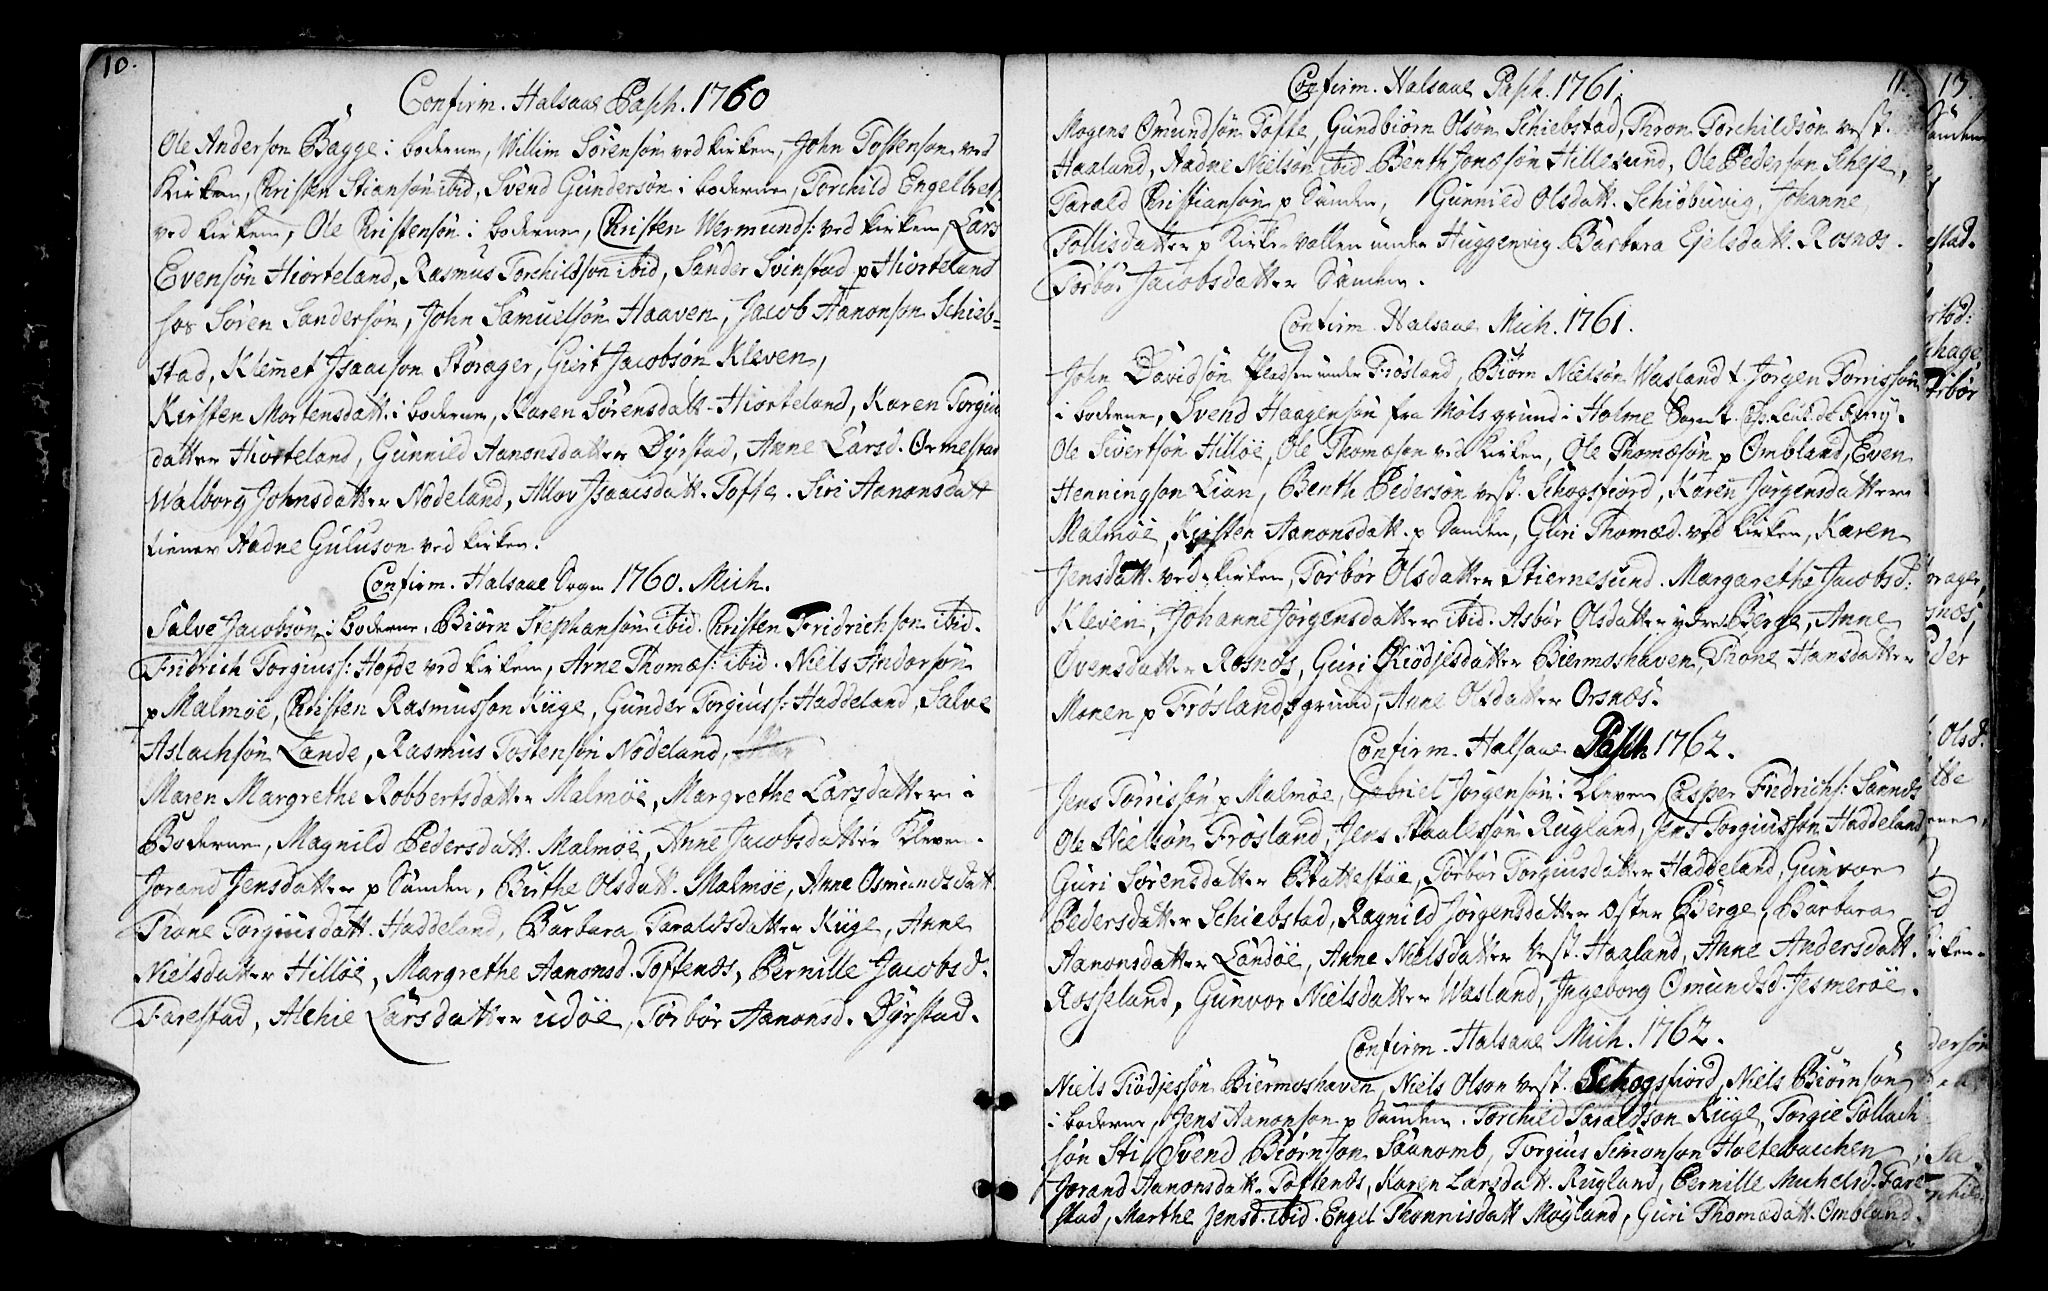 10.
Confirm. Halsaae Pasch. 1760
Ole Anderson Bagge i boderne, Willim Sörensön ved kirken, John Tostenson ved
Kirken, Christen Stiansön ibid, Svend Gündersön i boderne, Torchild Engelbret
ved kirken, Ole Christensön i boderne, Christen Wermunds: ved kirken, Lars
Evensön Hiorteland, Rasmus Torchildsson ibid, Sander Svinstad p Hiorteland
Sören Sandersön, John Samuelsön Haaven, Jacob Aanonson Schieb-
stad, Klemet Jsaacson Storager, Giert Jacobsön Kleven,
Kirsten Mortensdatt. i boderne, Karen Sörensdatt. Hiorteland, Karen Torgius
datter Hiorteland, Gunnild Aanonsdatter Dyrstad, Anne Larsd. Ormestad
Walborg Johnsdatter Nodeland, Allov Jsaacsdatt. Tofte. Siri Aanonsdatt
tiener Aadne Guluson ved kirken.
Confirm. Halsaae Sogn 1760. Mich.
Salve Jacobsön i boderne, Biörn Stephansön ibid. Christen Fridrichson ibid.
Fridrich Torgiuss: Hofde ved kirken, Arne Thomæs: ibid. Niels Andersön
p Malmöe, Christen Rasmusson Küge, Günder Torgiuss: Haddeland, Salve
Aslachsön Lande, Rasmus Tostenson Nodeland,
Maren Margrethe Robbertsdatter Malmöe, Margrethe Larsdatter i
Boderne, Magnild Pedersdatt. Malmöe, Anne Jacobsdatter Kleven.
Jorand Jensdatter p Sanden, Birthe Olsdatt. Malmöe, Anne Osmundsdatt
Trone Torgiusdatt. Haddeland, Barbara Taraldsdatter Küge, Anne
Nielsdatter Hillöe, Margrethe Aanonsd. Toftenæs, Pernille Jacobsd.
Farestad, Alchie Larsdatter udöe, Torbör Aanonsd. Dyrstad.
11.
Confirm. Halsaae Pasch. 1761.
Mogens Omundsön Tofte, Gundbiörn Olsön Schiebstad, Thron Torchildsön vest.
Haaland, Aadne Nielsön ibid. Benth Jonæsön Hillesund, Ole Pederson Scheje,
Tarald Christiansön p Sanden, Gunnild Olsdatt. Schiöbuvig, Johanne
Tollisdatter p Kirkevollen under Huggenvig. Barbara Ejelsdatt. Rosnæs.
Torbör Jacobsdatter Sanden.
Confirm. Halsaae Mich. 1761.
John Davidsön Pladsen under Frösland, Biörn Nielsön Wasland t. Jörgen Torrissön
i boderne, Svend Haagensön fra Möls grund i Holme Sogn
Ole Sivertsön Hillöe, Ole Thomæson ved kirken, Ole Thomæsön p Ombland, Even
Henningson Lian, Benth Pedersön vest. Schogsfiord, Karen Jörgensdatter
Malmöe, Kirsten Aanonsdatt. p Sanden, Guri Thomæd. ved kirken, Karen
Jensdatt. ved kirken, Torbör Olsdatter Stiernesund. Margarethe Jacobsd:
Kleven, Johanne Jörgensdatter ibid. Asbör Olsdatter ydre Berge, Anne
Ovensdatter Rosnæs, Guri Kiödjelsdatter Biermoshaven, Thone Hansdatter
Monen p Fröslandsgrund, Anne Olsdatter Orsnæs.
Confirm. Halsaae Pasch 1762.
Jens Torrissön p Malmöe, Gabriel Jörgensön i Kleven Casper Fridrichs: Sannds
Ole Nielsön Frösland, Jens Staalessön Rugland, Jens Torgiussön Haddeland,
Guri Sörensdatter Brattestöe, Torbör Torgiusdatter Haddeland, Gunvor
Pedersdatter Schiebstad, Ragnild Jörgensdatter Oster Berge, Barbara
Aanonsdatter Landöe, Anne Nielsdatter vest. Haaland, Anne Andersdatt.
Rosseland, Gunvor Nielsdatter Wasland, Jngeborg Omundsd. Jesmeröe.
Confirm. Halsaae Mich. 1762.
Niels Tiödjessön Biermoshaven, Niels Olson vest. Schogsfiord, Niels Biörnsön
i boderne, Jens Aanonson p Sanden. Torchild Taraldsson Küge, Torgie Tollach
sön Sti, Svend Biörnson Saanomb, Torgius Simonson Holtebacchen
Jorand Aanonsdatt. Toftenæs, Karen Larsdatt. Rugland, Pernille Michelsd. Fare
stad, Marthe Jensd. ibid. Engel Thonnisdatt Mögland, Guri Thomædatt. Ombland.